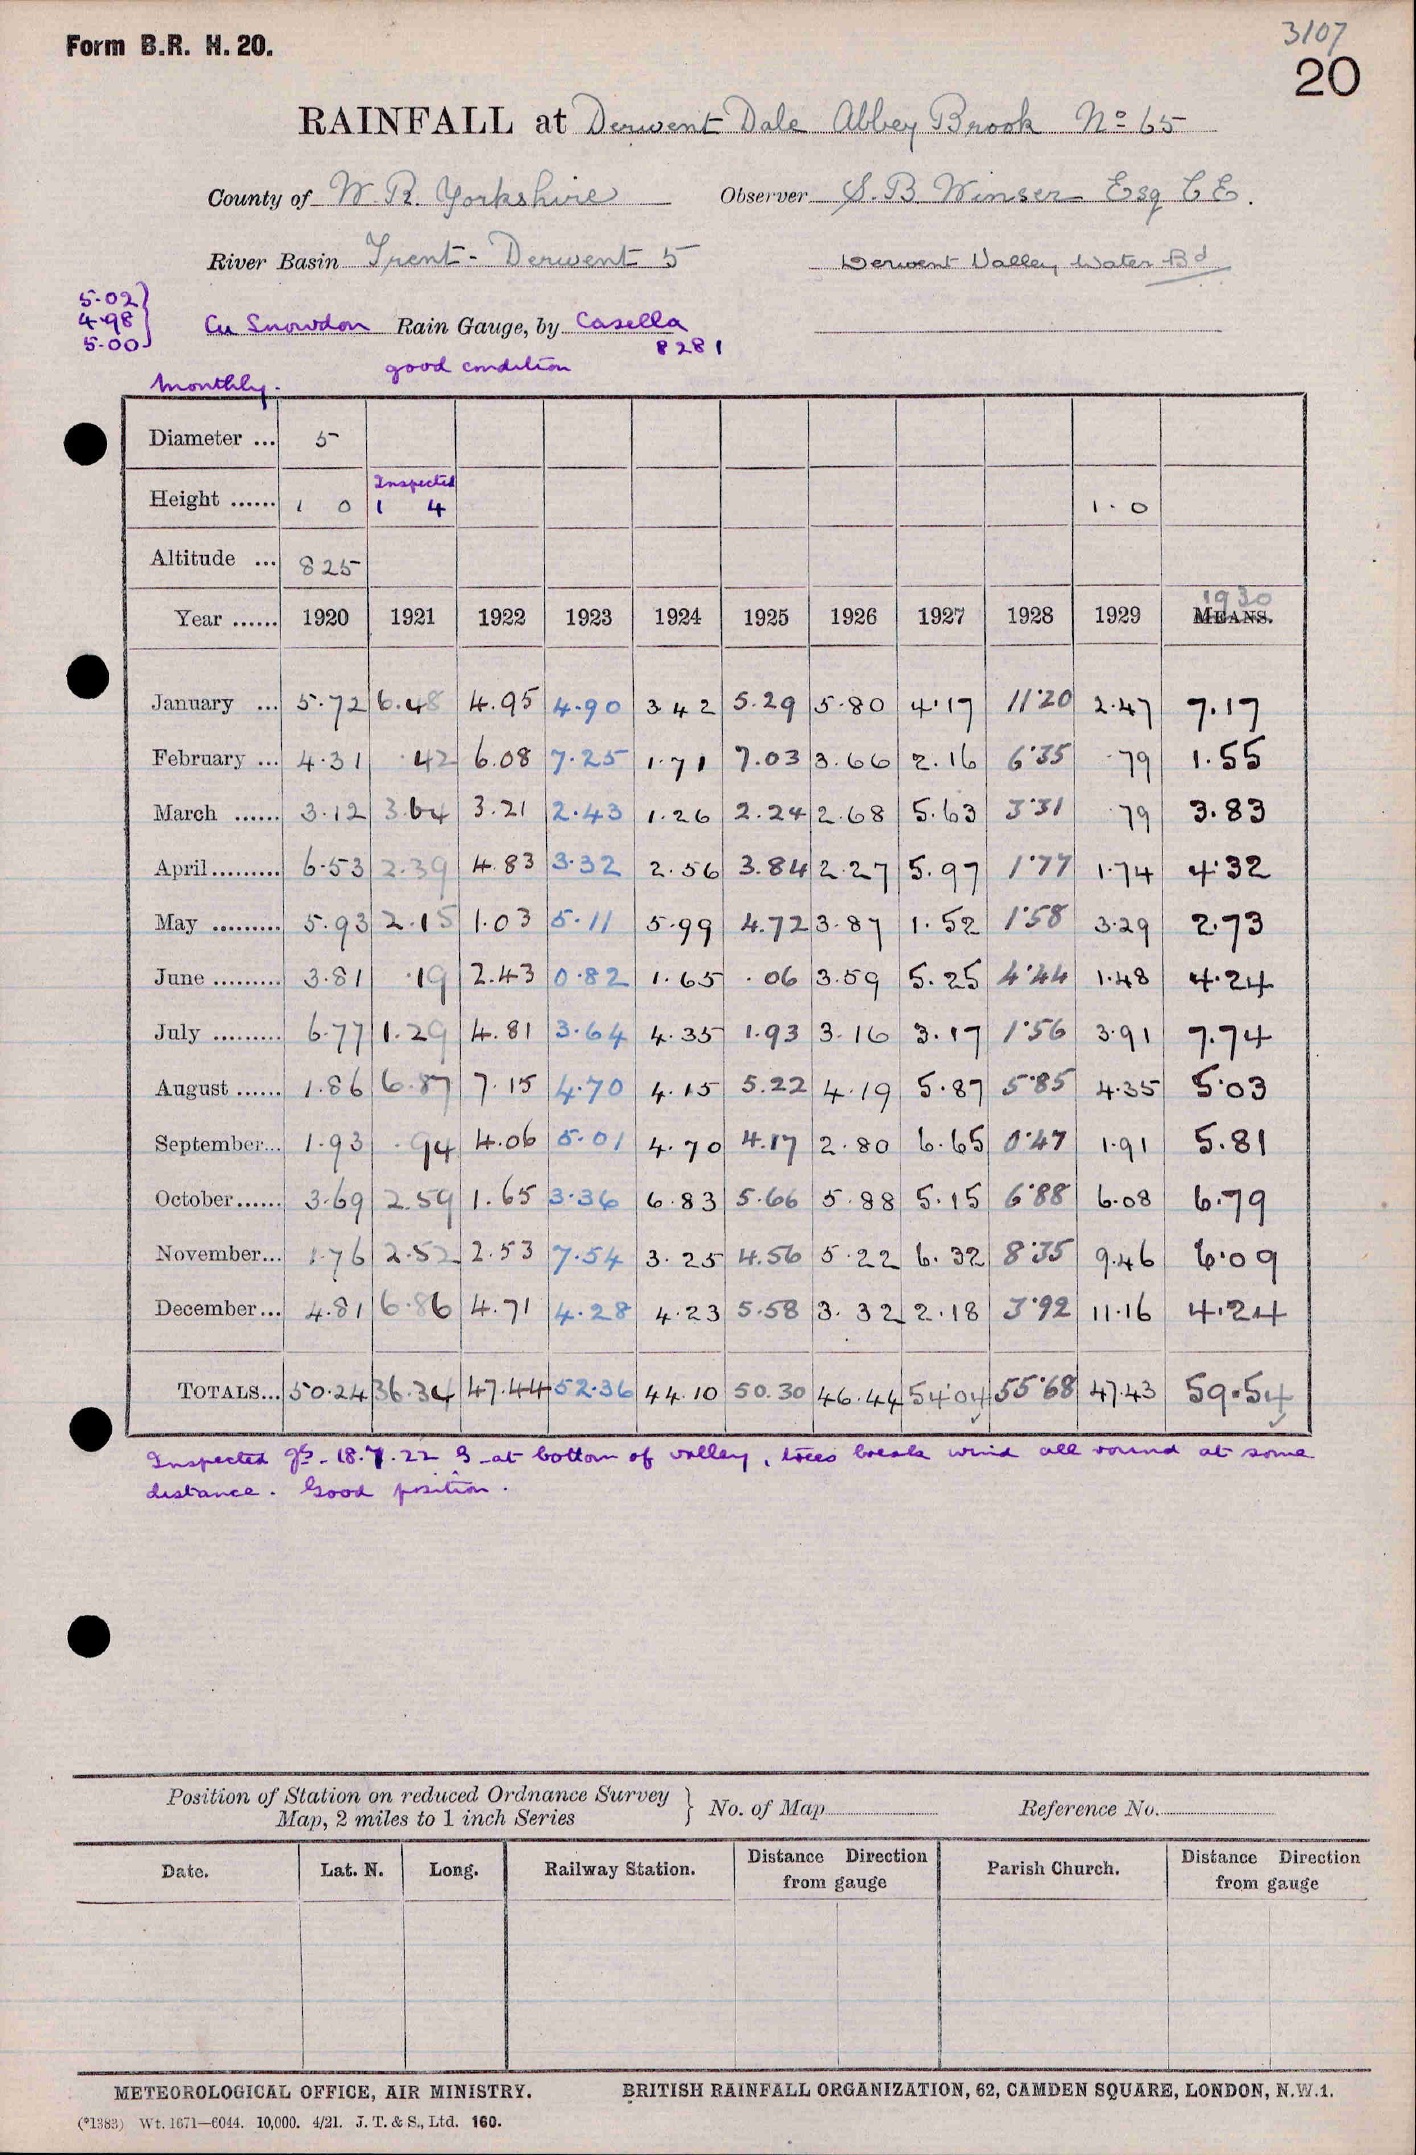 Form B.R. H. 20.
3107
20
RAINFALL at Derwent Dale Abbey Brook No 65
County of W. R. Yorkshire Observer S. B Winser Esq C E.
River Basin Trent - Derwent 5 Derwent Valley Water Bd
5.02
4.98
5.00
Cu Snowdon Rain Gauge, by Casella
8281
good condition
Monthly.
Diameter ... 5
Inspected
Height ...... 1 0 1 4 1.0
Altitude ... 825
1930
Year ...... 1920 1921 1922 1923 1924 1925 1926 1927 1928 1929 MEANS.
January ... 5.72 6.48 4.95 4.90 3 42 5.29 5.80 4.17 11.20 2.47 7.17
February ... 4.31 .42 6.08 7.25 1.71 7.03 3.66 2.16 6.35 .79 1.55
March ...... 3.12 3.64 3.21 2.43 1.26 2.24 2.68 5.63 3.31 79 3.83
April......... 6.53 2.39 4.83 3.32 2.56 3.84 2.27 5.97 1.77 1.74 4.32
May ......... 5.93 2.15 1.03 5.11 5.99 4.72 3.87 1.52 1.58 3.29 2.73
June ......... 3.81 .19 2.43 0.82 1.65 .06 3.59 5.25 4.44 1.48 4.24
July ......... 6.77 1.29 4.81 3.64 4.35 1.93 3.16 3.17 1.56 3.91 7.74
August ...... 1.86 6.87 7.15 4.70 4.15 5.22 4.19 5.87 5.85 4.35 5.03
September... 1.93 .94 4.06 5.01 4.70 4.17 2.80 6.65 0.47 1.91 5.81
October...... 3.69 2.59 1.65 3.36 6.83 5.66 5.88 5.15 6.88 6.08 6.79
November... 1.76 2.52 2.53 7.54 3.25 4.56 5.22 6.32 8.35 9.46 6.09
December... 4.81 6.86 4.71 4.28 4.23 5.58 3.32 2.18 3.92 11.16 4.24
TOTALS... 50.24 36.34 47.44 52.36 44.10 50.30 46.44 54.04 55.68 47.43 59.54
Inspected 18.7.22 at bottom of valley, trees break wind all round at some
distance. Good position.
Position of Station on reduced Ordnance Survey
Map, 2 miles to 1 inch Series } No. of Map Reference No.
Date. Lat. N. Long. Railway Station. Distance Direction from gauge Parish Church. Distance Direction from gauge
METEOROLOGICAL OFFICE, AIR MINISTRY. BRITISH RAINFALL ORGANIZATION, 62, CAMDEN SQUARE, LONDON, N.W.1.
(*1383) Wt. 1671—6044. 10,000. 4/21. J. T. & S., Ltd. 160.